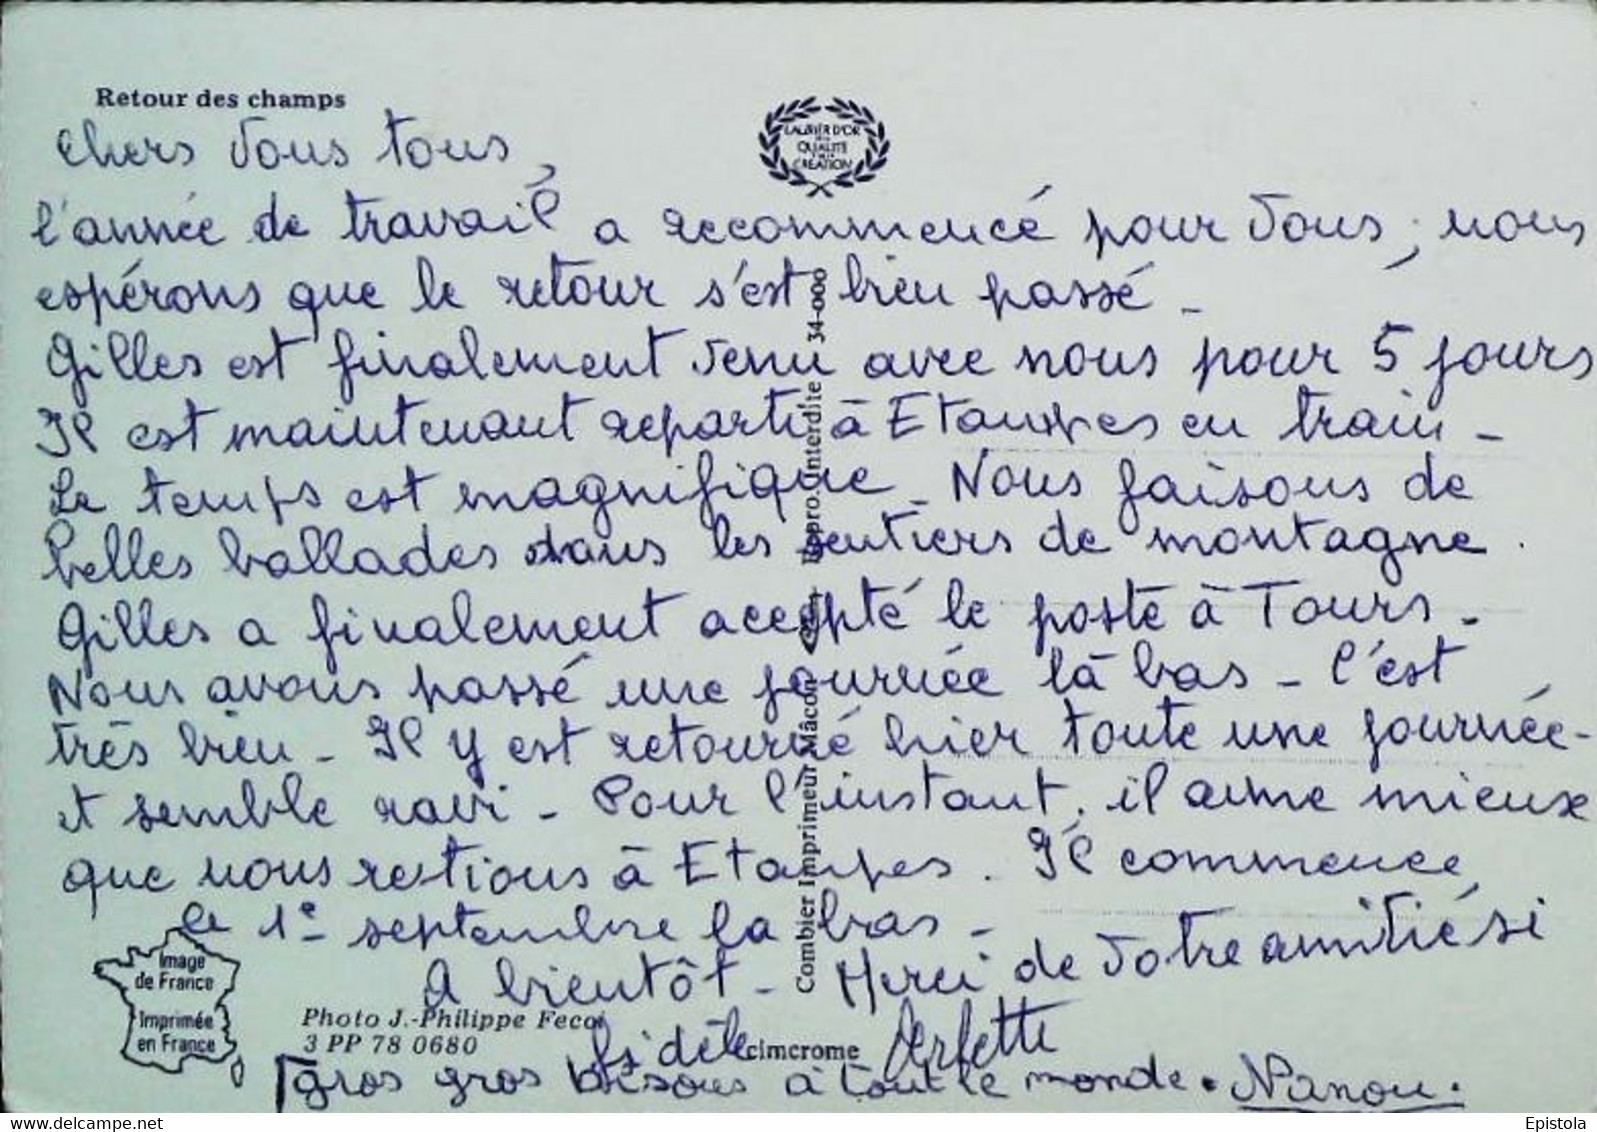 Retour des champs
LAURIER D'OR
DE LA
QUALITÉ
CRÉATION
Chers Vous tous,
l'année de travail a recommencé pour Vous, nous
espérons que le retour s'est bien passé -
Gilles est finalement venu avec nous pour 5 jours
Il est maintenant reparti à Etampes en train -
Le temps est magnifique - Nous faisons de
belles ballades dans les sentiers de montagne.
Gilles a finalement accepté le poste à Tours -
Nous avons passé une journée là bas - C'est
très bien - Il y est retourné hier toute une journée -
et semble ravi - Pour l'instant, il aime mieux
que nous restions à Etampes. Il commence
le 1e septembre la bas -
A bientôt - Merci de Votre amitié si
fidèle
gros gros bisous à tout le monde. Nanou.
Combier Imprimeur Mâcon
Reppro. Interdite 34-000
Image
de France
Imprimée
en France
Photo J.-Philippe Feco
3 PP 78 0680
cimcrome
www.delcampe.net
Epistola